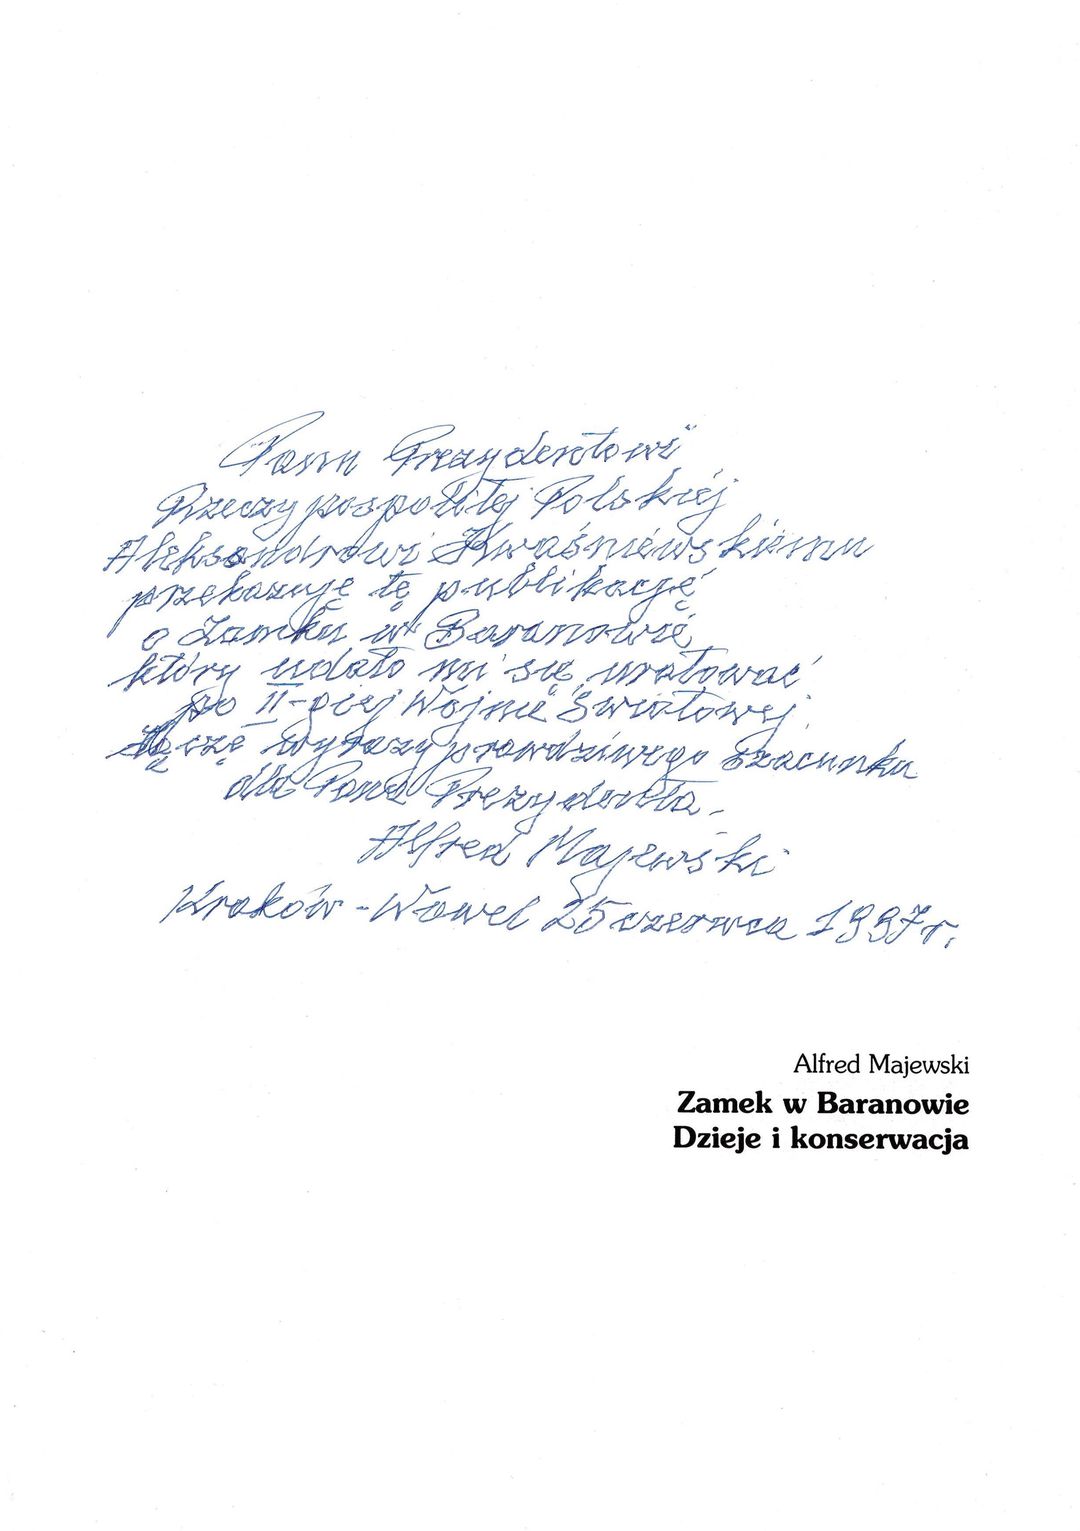 Panu Prezydentowi
Rzeczypospolitej Polskiej
Aleksandrowi Kwaśniewskiemu
przekazuję tę publikację
o Zamku w Baranowie
który udało mi się uratować
po II-giej Wojnie Światowej.
Łączę wyrazy prawdziwego szacunku
dla Pana Prezydenta.
Alfred Majewski
Kraków - Wawel 25 czerwca 1997 r.
Alfred Majewski
Zamek w Baranowie
Dzieje i konserwacja